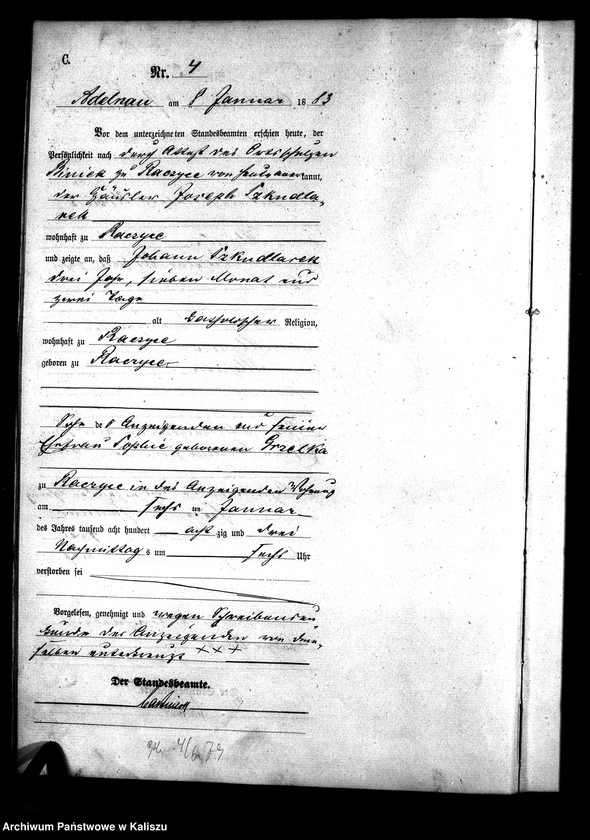 C.
Nr. 4
Adelnau am 8 Januar 1883
Vor dem unterzeichneten Standesbeamten erschien heute, der
Persönlichkeit nach durch Attest des Ortsschulzen
zu Raczyce von heute anerkannt,
der Häusler Joseph Szkudla-
rek
wohnhaft zu Raczyce
und zeigte an, daß Johann Szkudlarek
drei Jahr, sieben Monat und
zwei Tage
alt katholischer Religion,
wohnhaft zu Raczyce
geboren zu Raczyce
Sohn des Anzeigenden und seiner
Ehefrau Sophie geborenen Grzelka
zu Raczyce in des Anzeigenden Wohnung
am sechs ten Januar
des Jahres tausend acht hundert acht zig und drei
Nachmittags um sechs Uhr
verstorben sei
Vorgelesen, genehmigt und wegen Schreibensun-
kunde des Anzeigenden von dem-
selben unterkreuzt + + +
Der Standesbeamte.
Archiwum Państwowe w Kaliszu